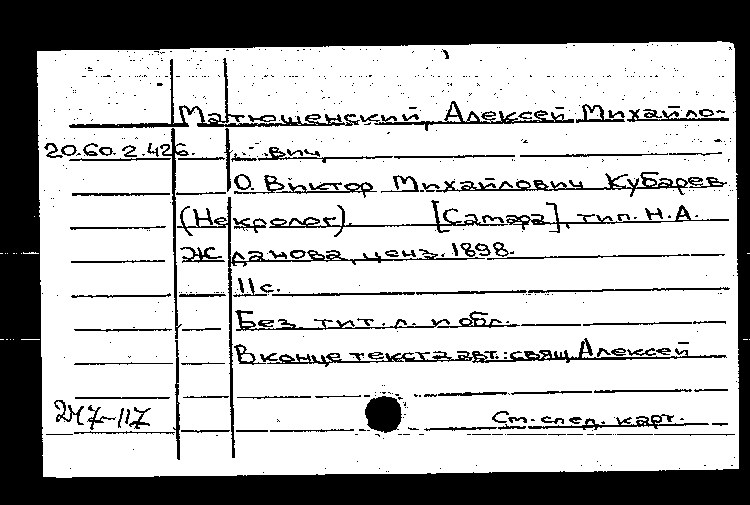 Матюшенский, Алексей Михайло-
20.60.2.426. вич,
О. Виктор Михайлович Кубарев
(Некролог). [Самара], тип. Н.А.
Жданова, ценз. 1898.
11 с.
Без тит. л. и обл.
В конце текста авт.: свящ. Алексей
247-117 См. след. карт.